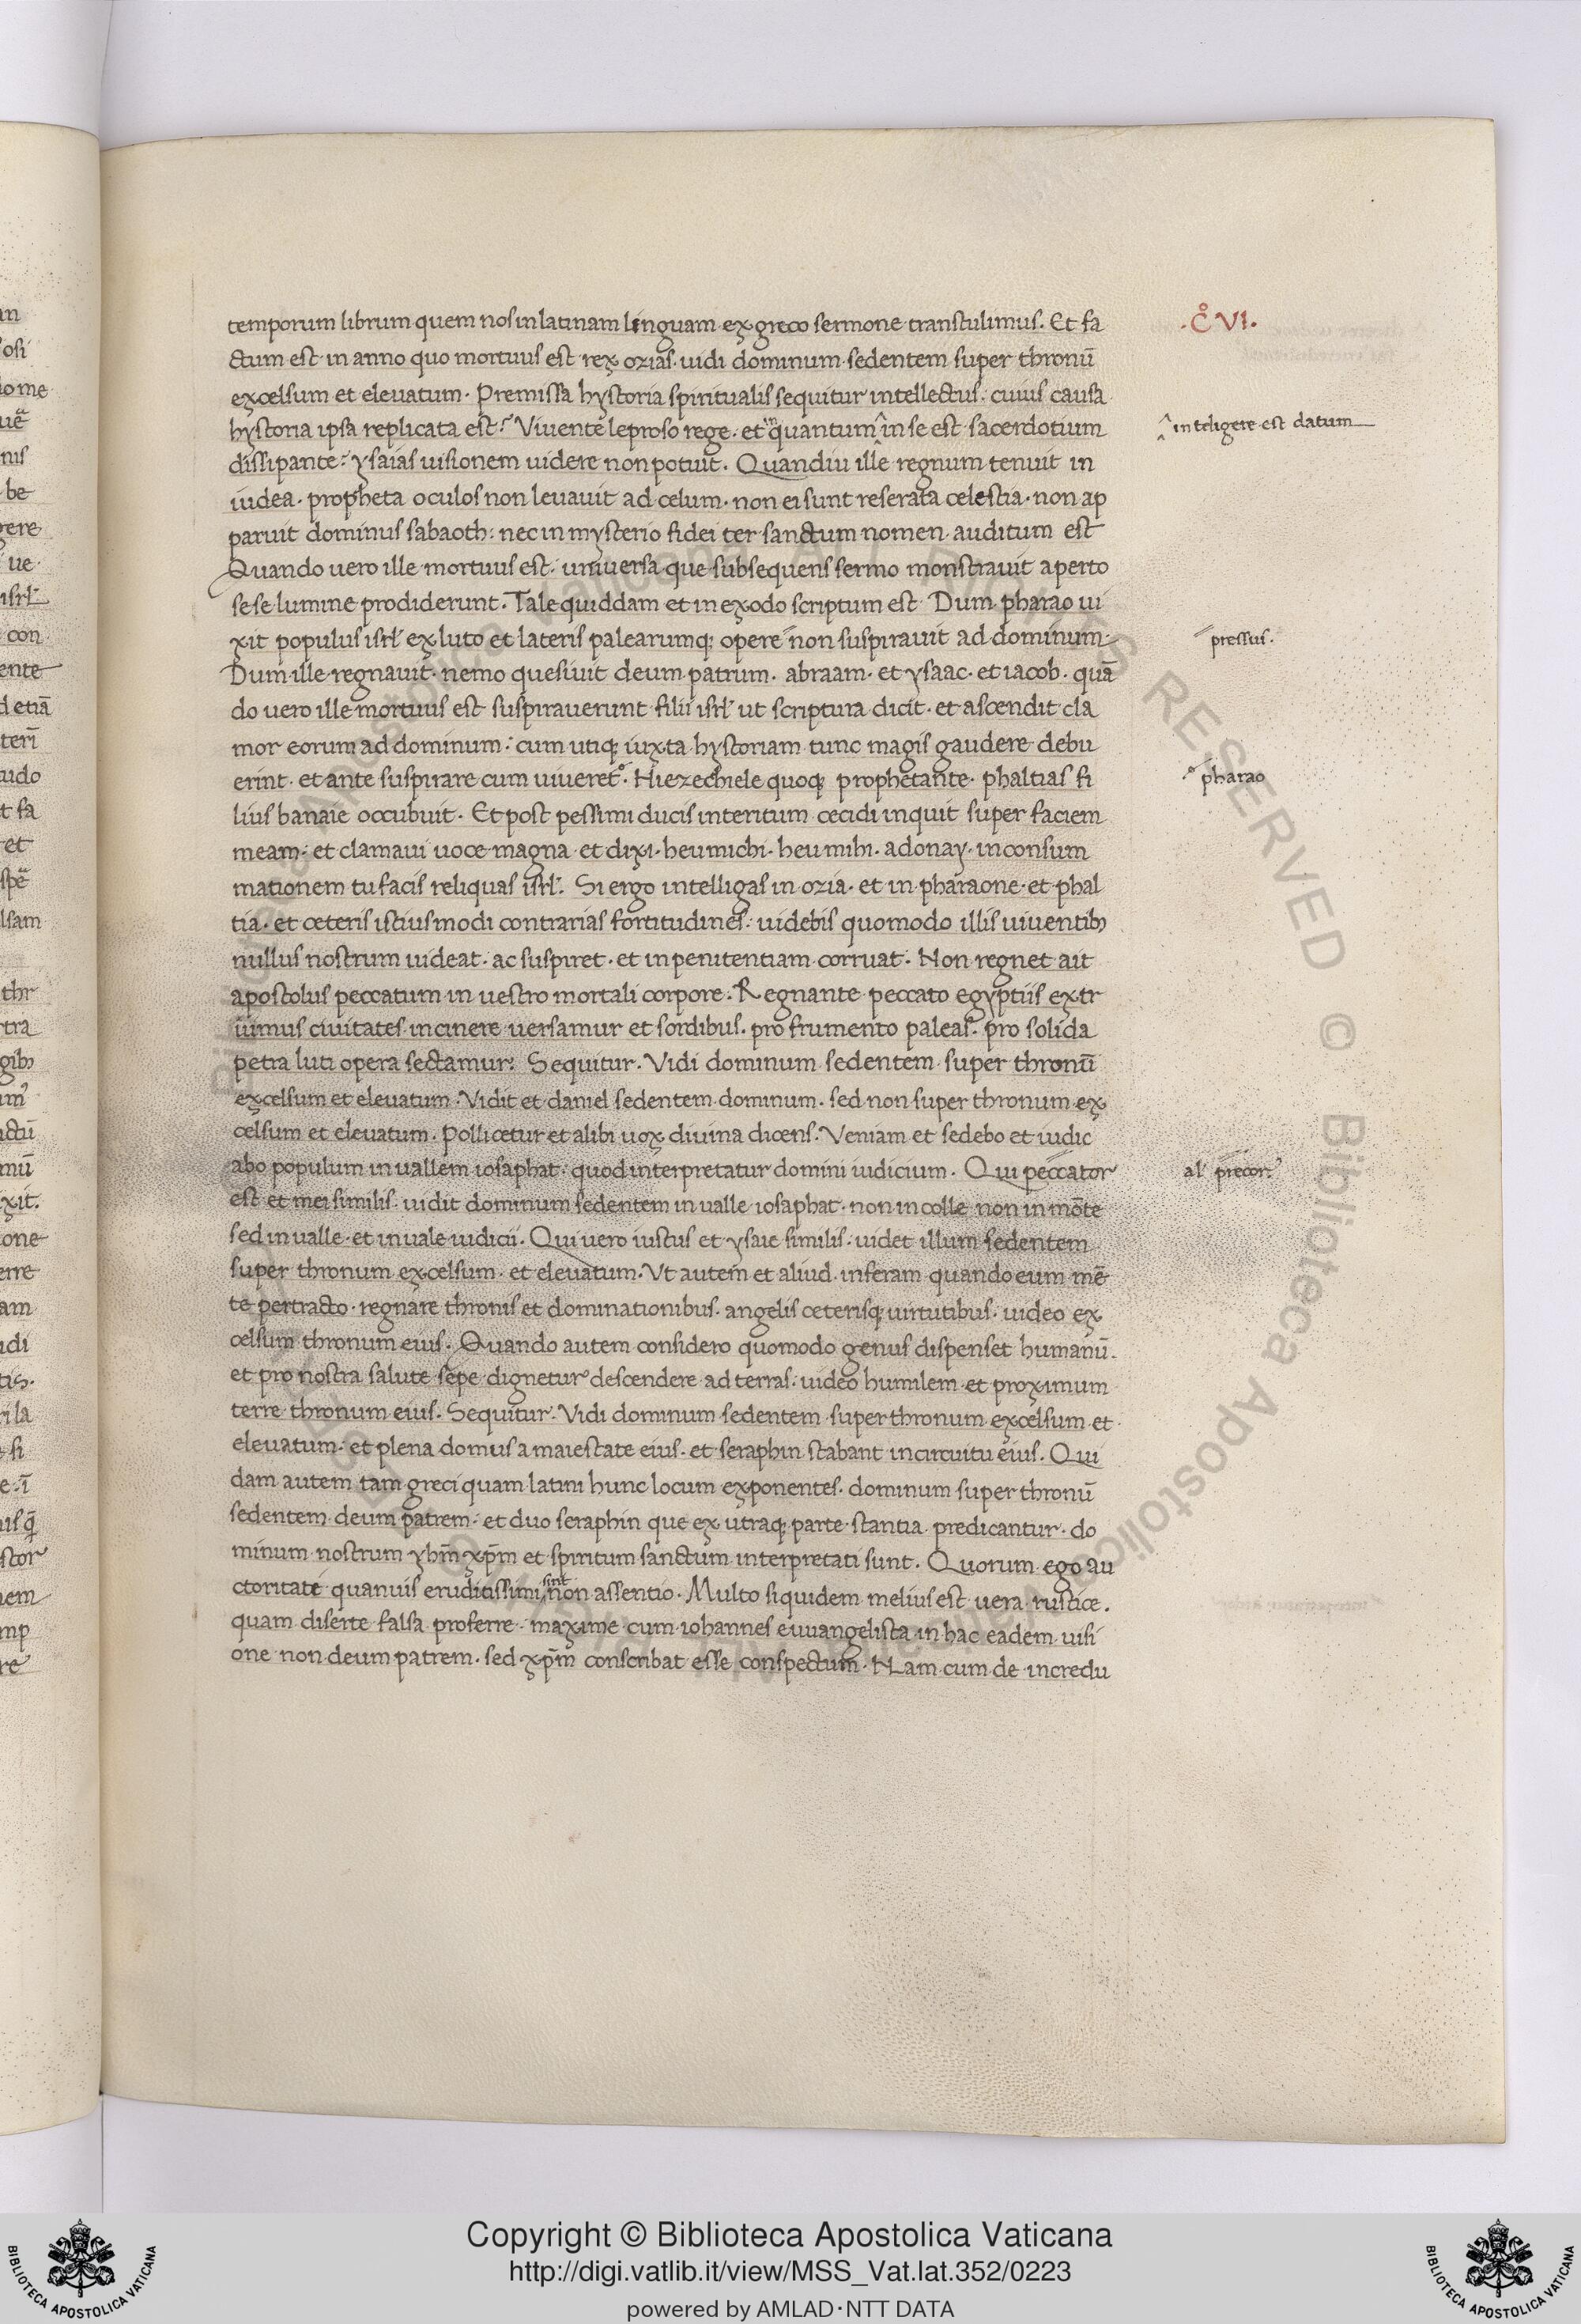 temporum librum quem nos in latinam linguam ex greco sermone transtulimus. Et fa
.C̊ VI.
ctum est in anno quo mortuus est rex ozias. uidi dominum sedentem super thronū
excelsum et eleuatum. Premissa hystoria spiritualis sequitur intellectus. cuius causa
hystoria ipsa replicata est. Viuente leproso rege. et in quantum ^ in se est sacerdotium
^ inteligere est datum
dissipante. ysaias uisionem uidere non potuit. Quandiu ille regnum tenuit in
iudea. propheta oculos non leuauit ad celum. non ei sunt reserata celestia. non ap
paruit dominus sabaoth. nec in mysterio fidei ter sanctum nomen auditum est
Quando uero ille mortuus est. uniuersa que subsequens sermo monstrauit aperto
sese lumine prodiderunt. Tale quiddam et in exodo scriptum est Dum pharao ui
xit populus isrl' ex luto et lateris palearumq; opere non suspirauit ad dominum.
pressus.
Dum ille regnauit. nemo quesiuit deum patrum. abraam. et ysaac. et iacob. quā
do uero ille mortuus est suspirauerunt filii isrl' ut scriptura dicit. et ascendit cla
mor eorum ad dominum. cum utiq; iuxta hystoriam tunc magis gaudere debu
erint. et ante suspirare cum uiueret. Hiezechiele quoq; prophetante. phaltias fi
pharao
lius banaie occubuit. Et post pessimi ducis interitum cecidi inquit super faciem
meam. et clamaui uoce magna et dixi. heu michi. heu mihi. adonay. in consum
mationem tu facis reliquas isrl'. Si ergo intelligas in ozia. et in pharaone et phal
tia. et ceteris istiusmodi contrarias fortitudines. uidebis quomodo illis uiuentib;
nullus nostrum uideat. ac suspiret. et in penitentiam corruat. Non regnet ait
apostolus peccatum in uestro mortali corpore. Regnante peccato egyptiis extr
uimus ciuitates. in cinere uersamur et sordibus. pro frumento paleas. pro solida
petra luti opera sectamur. Sequitur. Vidi dominum sedentem super thronū
excelsum et eleuatum. Vidit et daniel sedentem dominum. sed non super thronum ex
celsum et eleuatum. Pollicetur et alibi uox diuina dicens. Veniam et sedebo et iudic
abo populum in uallem iosaphat. quod interpretatur domini iudicium. Qui peccator
al' precor.
est et mei similis. uidit dominum sedentem in ualle iosaphat. non in colle non in mōte
sed in ualle. et in uale iudicii. Qui uero iustus et ysaie similis. uidet illum sedentem
super thronum excelsum. et eleuatum. Vt autem et aliud inferam quando eum mē
te pertracto. regnare thronis et dominationibus. angelis ceterisq; uirtutibus. uideo ex
celsum thronum eius. Quando autem considero quomodo genus dispenset humanū.
et pro nostra salute sepe dignetur descendere ad terras. uideo humilem et proximum
terre thronum eius. Sequitur. Vidi dominum sedentem super thronum excelsum et
eleuatum. et plena domus a maiestate eius. et seraphin stabant in circuitu eius. Qui
dam autem tam greci quam latini hunc locum exponentes. dominum super thronū
sedentem deum patrem. et duo seraphin que ex utraq; parte stantia predicantur. do
minum nostrum yhm̄ xp̄m et spiritum sanctum interpretati sunt. Quorum ego au
ctoritate quanuis eruditissimi sint non assentio. Multo siquidem melius est uera rustice.
quam diserte falsa proferre. maxime cum iohannes euuangelista in hac eadem uisi
one non deum patrem. sed xp̄m conscribat esse conspectum. Nam cum de incredu
Copyright © Biblioteca Apostolica Vaticana
http://digi.vatlib.it/view/MSS_Vat.lat.352/0223
powered by AMLAD·NTT DATA
BIBLIOTECA APOSTOLICA VATICANA
BIBLIOTECA APOSTOLICA VATICANA